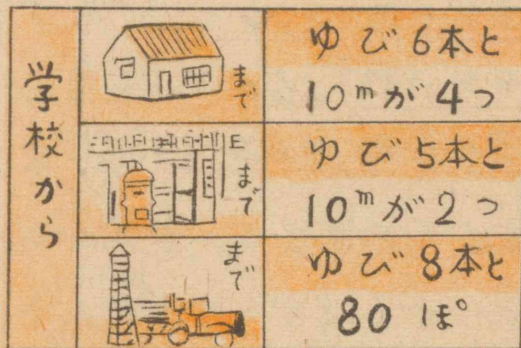 学校から
まで
ゆび6本と
10mが4つ
まで
ゆび5本と
10mが2つ
まで
ゆび8本と
80ぽ